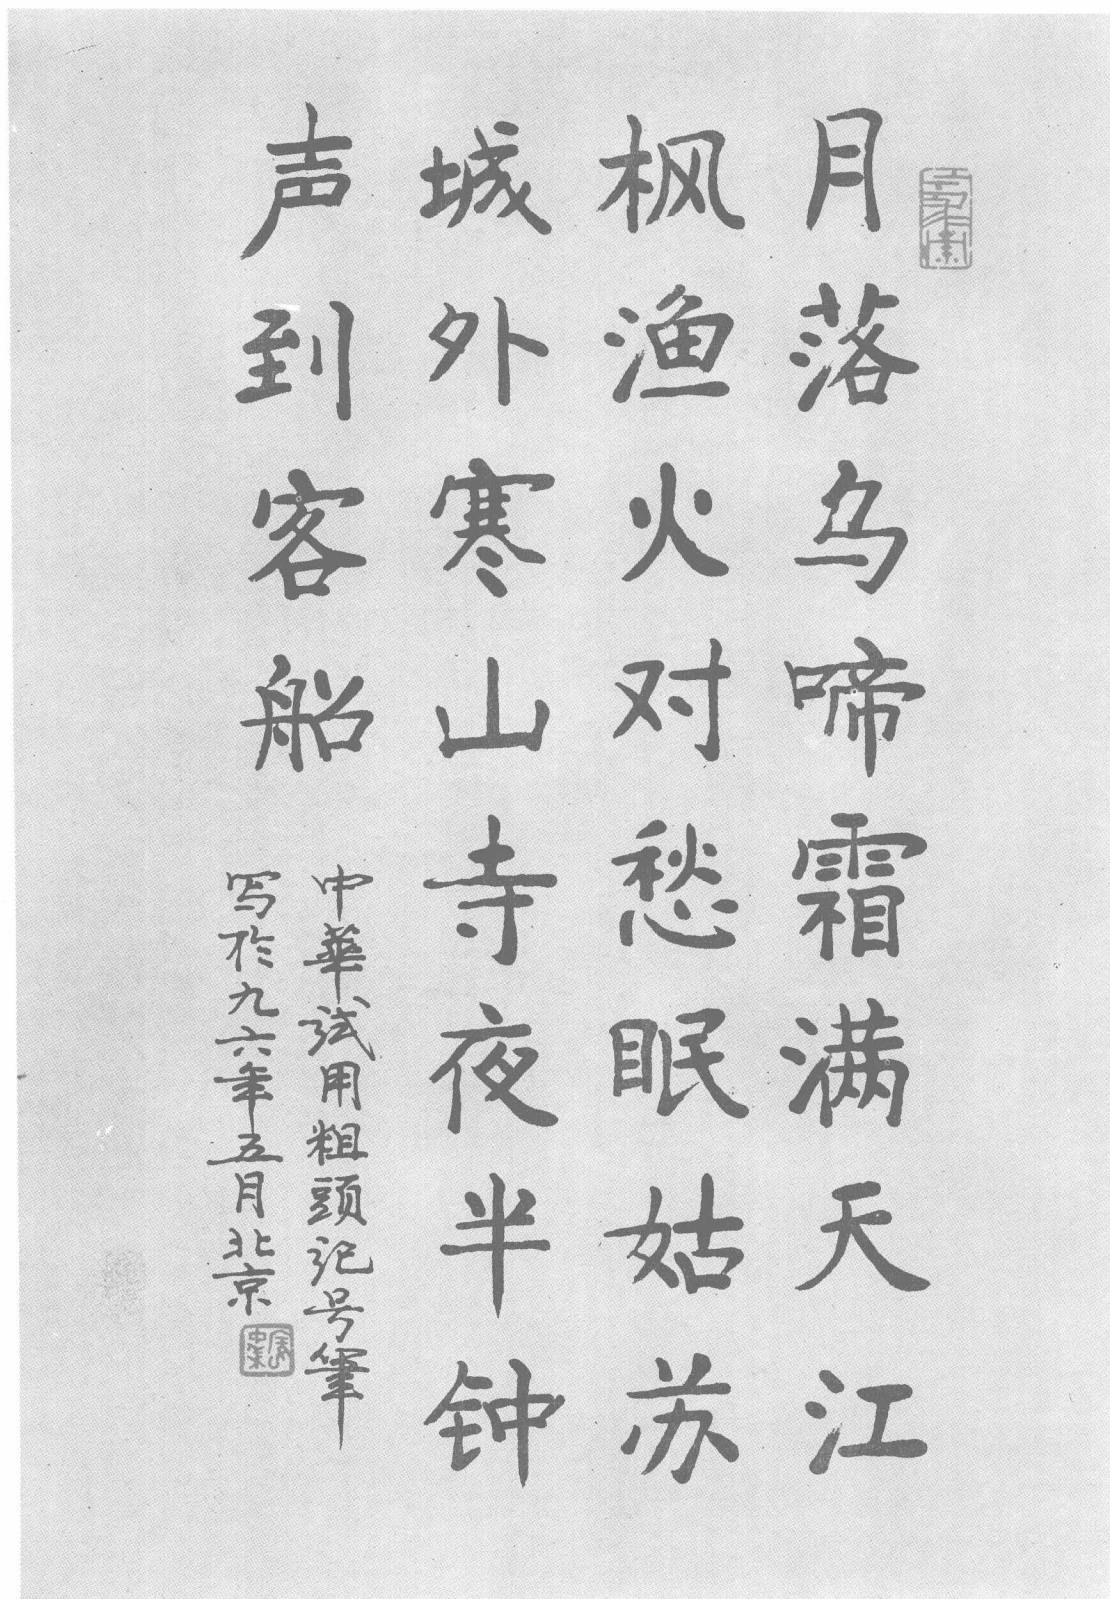 月落乌啼霜满天江
枫渔火对愁眠姑苏
城外寒山寺夜半钟
声到客船
中華試用粗頭记号筆
写於九六年五月北京